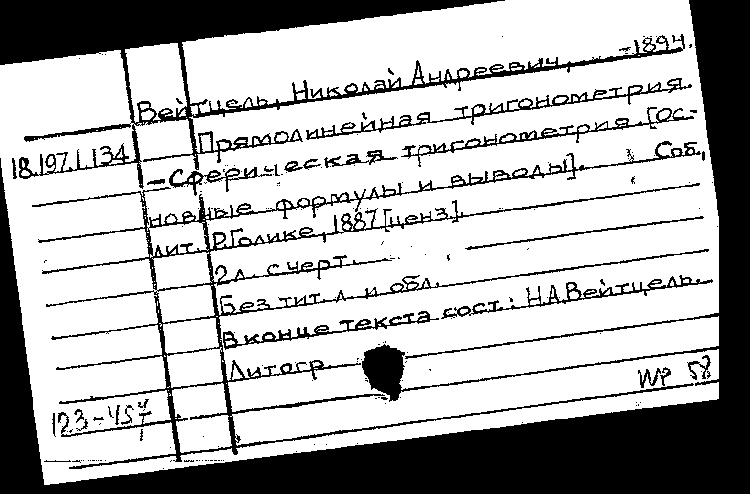 Вейтцель, Николай Андреевич, -1894.
18.197.1.134 Прямолинейная тригонометрия.
-Сферическая тригонометрия. [Ос-
новные формулы и выводы]. Соб.,
лит. Р.Голике, 1887 [ценз].
2л. с черт.
Без тит. л. и обл.
В конце текста сост.: Н.А.Вейтцель.
Литогр.
123-457 58